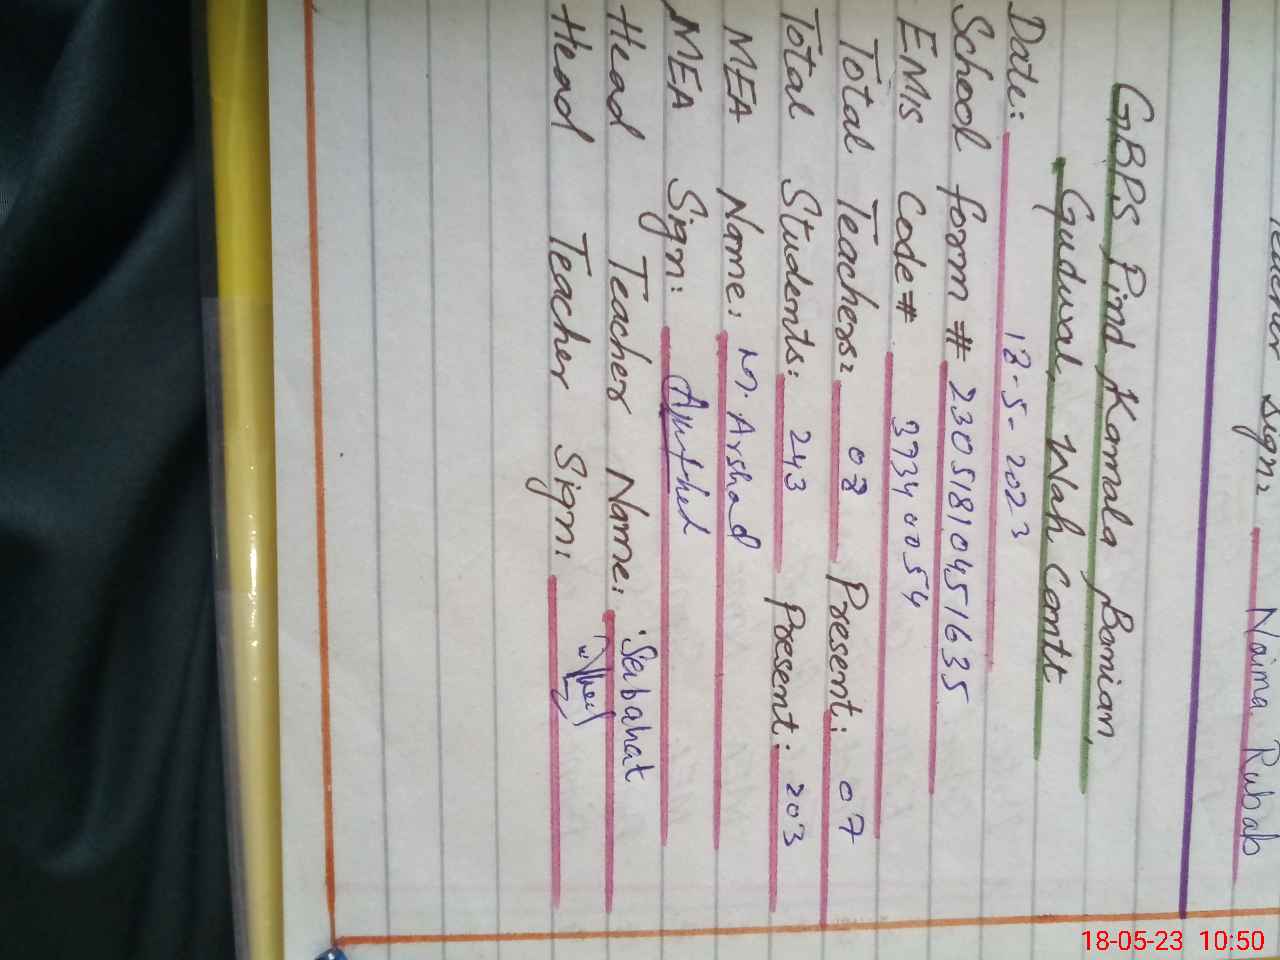 Teacher Sign: Naima Rubab
GBPS Pind Kamala Bomian,
Gudwal, Wah Cantt
Date: 18-5-2023
School form # 23051810451635
EMIS Code# 37340054
Total Teachers: 08 Present: 07
Total Students: 243 Present: 203
MEA Name: M. Arshad
MEA Sign:
Head Teacher Name: Sabahat
Head Teacher Sign:
18-05-23 10:50